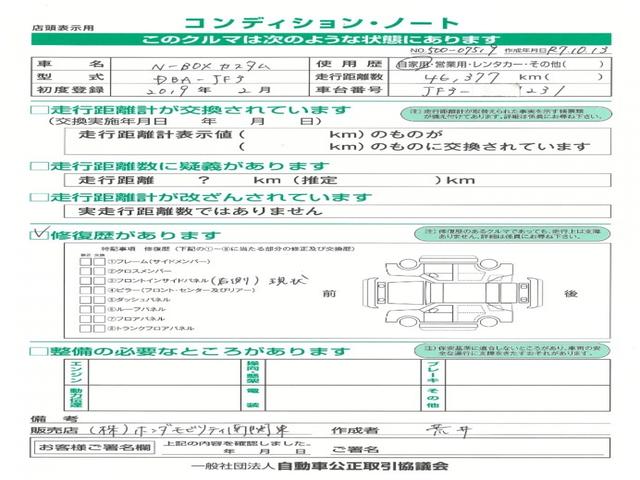 店頭表示用
コンディション・ノート
このクルマは次のような状態にあります
NO.500-07519 作成年月日 R7.10.13
車名 N-BOX カスタム 使用歴 自家用・営業用・レンタカー・その他( )
型式 DBA-JF3 走行距離数 46,377 km( )
初度登録 2019年 2月 車台番号 JF3- 1231
□走行距離計が交換されています
(交換実施年月日 年 月 日)
注)走行距離計が取替えられた事実を示す帳票類が備え付けてあります。詳細は係員にお尋ね下さい。
走行距離計表示値( km)のものが
( km)のものに交換されています
□走行距離数に疑義があります
走行距離 ? km(推定 )km
□走行距離計が改ざんされています
実走行距離数ではありません
□修復歴があります
注)修復歴のあるクルマであっても、走行上は支障ありません。詳細は係員にお尋ね下さい。
特記事項 修復歴(下記の①~⑧に当たる部分の修正及び交換歴)
修正 交換
①フレーム(サイドメンバー)
②クロスメンバー
③フロントインサイドパネル(右側)現状
④ピラー(フロント・センター及びリアー)
⑤ダッシュパネル
⑥ルーフパネル
⑦フロアパネル
⑧トランクフロアパネル
前
後
□整備の必要なところがあります
注)保安基準に適合しないところがあり、車両の安全な運行に支障をきたすおそれがあります。
エンジン
操向装架
ブレーキ
動力伝達
電装
その他
備考
販売店 (株)ホンダモビリティ南関東 作成者 荒井
お客様ご署名欄 上記の内容を確認しました。
年 月 日 ご署名
一般社団法人 自動車公正取引協議会